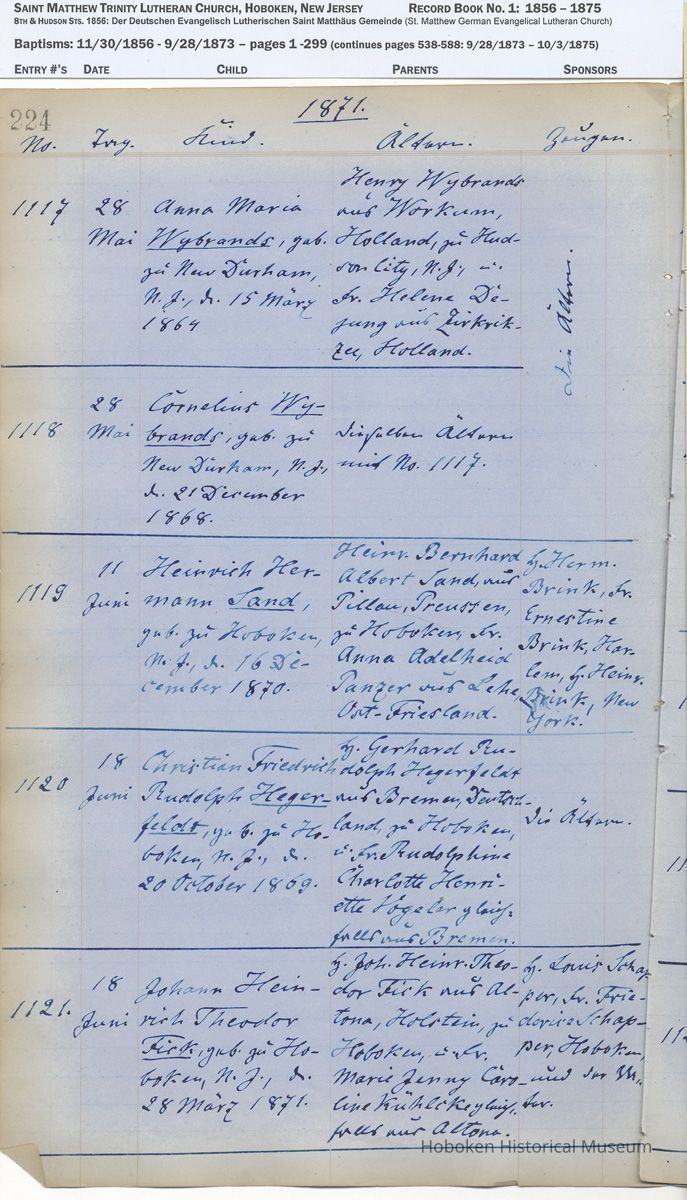 SAINT MATTHEW TRINITY LUTHERAN CHURCH, HOBOKEN, NEW JERSEY RECORD BOOK NO. 1: 1856 – 1875
8TH & HUDSON STS. 1856: Der Deutschen Evangelisch Lutherischen Saint Matthäus Gemeinde (St. Matthew German Evangelical Lutheran Church)
Baptisms: 11/30/1856 - 9/28/1873 – pages 1 -299 (continues pages 538-588: 9/28/1873 – 10/3/1875)
ENTRY #'S DATE CHILD PARENTS SPONSORS
224
1871.
No. Tag. Kind. Ältern. Zeugen.
1117
28
Mai
Anna Maria
Wybrands, geb.
zu New Durham,
N. J., d. 15 März
1864
Henry Wybrands
aus Workum,
Holland, zu Hud-
son City, N. J., u.
Fr. Helene De-
jung aus Zirkrik-
zee, Holland.
Die Ältern.
1118
28
Mai
Cornelius Wy-
brands, geb. zu
New Durham, N. J.,
d. 21 December
1868.
Dieselben Ältern
mit No. 1117.
1119
11
Juni
Heinrich Her-
mann Sand,
geb. zu Hoboken,
N. J., d. 16 De-
cember 1870.
Heinr. Bernhard
Albert Sand, aus
Pillau, Preussen,
zu Hoboken, Fr.
Anna Adelheid
Panzer aus Lehe,
Ost-Friesland.
H. Herm.
Brink, Fr.
Ernestine
Brink, Har-
lem, H. Heinr.
Brink, New
York.
1120
18
Juni
Christian Friedrich
Rudolph Heger-
feldt, geb. zu Ho-
boken, N. J., d.
20 October 1869.
H. Gerhard Ru-
dolph Hegerfeldt
aus Bremen, Deutsch-
land, zu Hoboken,
u. Fr. Rudolphine
Charlotte Henri-
ette Vogeler gleich-
falls aus Bremen.
Die Ältern.
1121.
18
Juni
Johann Hein-
rich Theodor
Fick, geb. zu Ho-
boken, N. J., d.
28 März 1871.
H. Joh. Heinr. Theo-
dor Fick aus Al-
tona, Holstein, zu
Hoboken, u. Fr.
Marie Jenny Caro-
line Kühlcke gleich-
falls aus Altona.
H. Louis Schap-
per, Fr. Frie-
derice Schap-
per, Hoboken,
und der
Hoboken Historical Museum